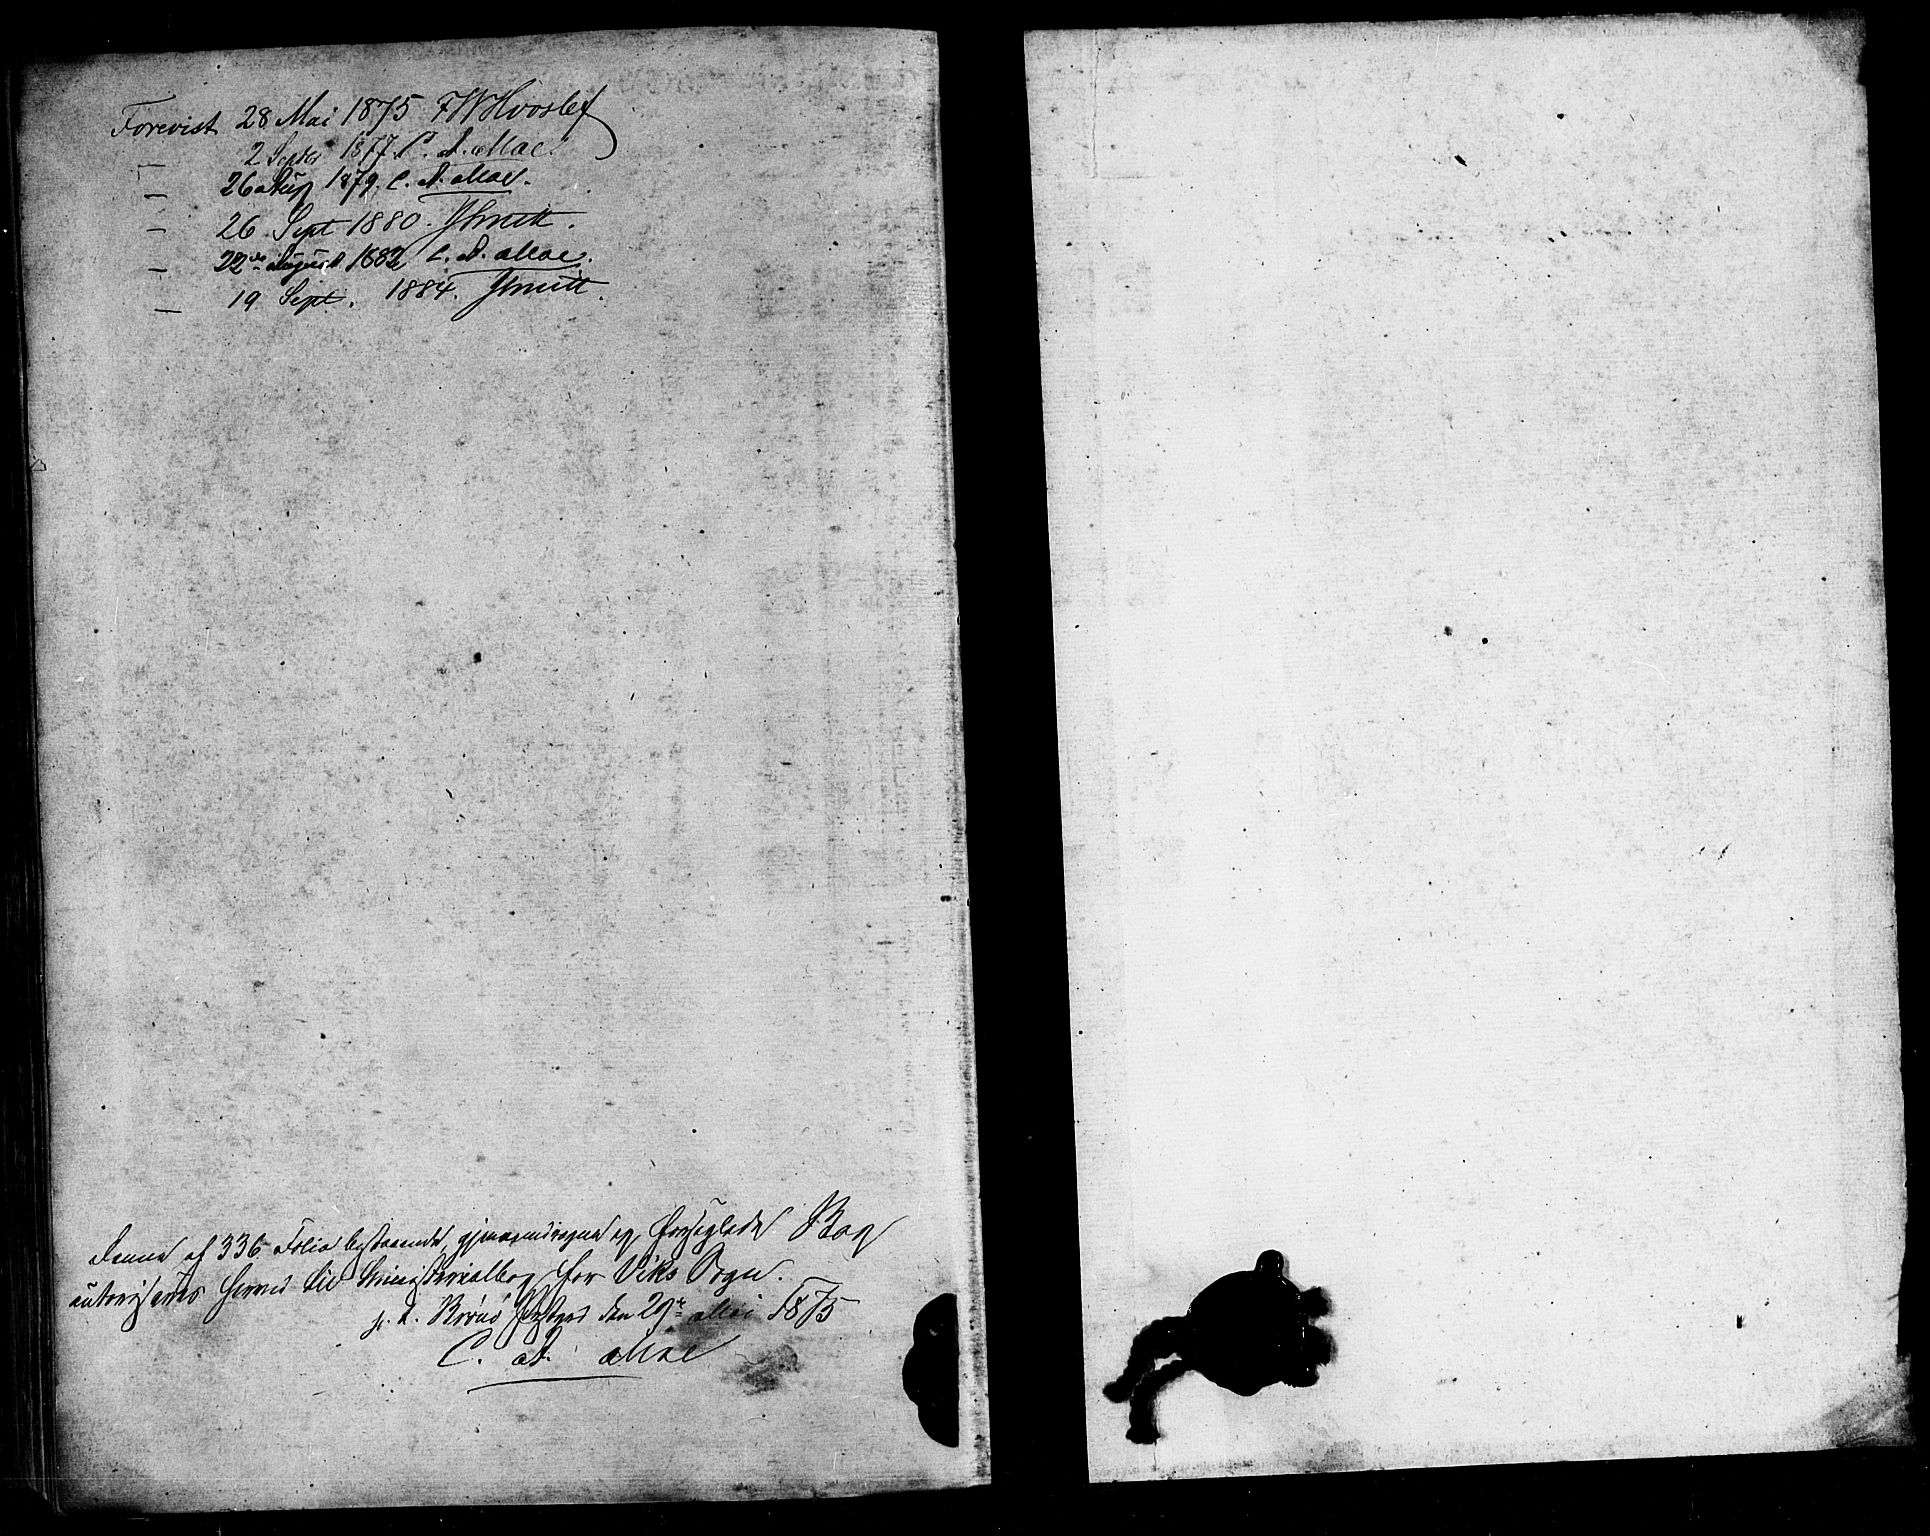 Forevist 28 Mai 1875 FWHvoslef
— 2 Septbr 1877. C. A. Moe.
— 26 Aug 1879. C. A. Moe.
— 26 Sept 1880. JSmitt.
— 22de August 1882 C. A. Moe.
— 19 Sept. 1884. JSmitt.
Denne af 336 Folio bestaaende, gjennemdragne og forseglede Bog
autoriseres herved til Ministerialbog for Viks Sogn.
Brønø den 29de Mai 1875
C. A. Moe